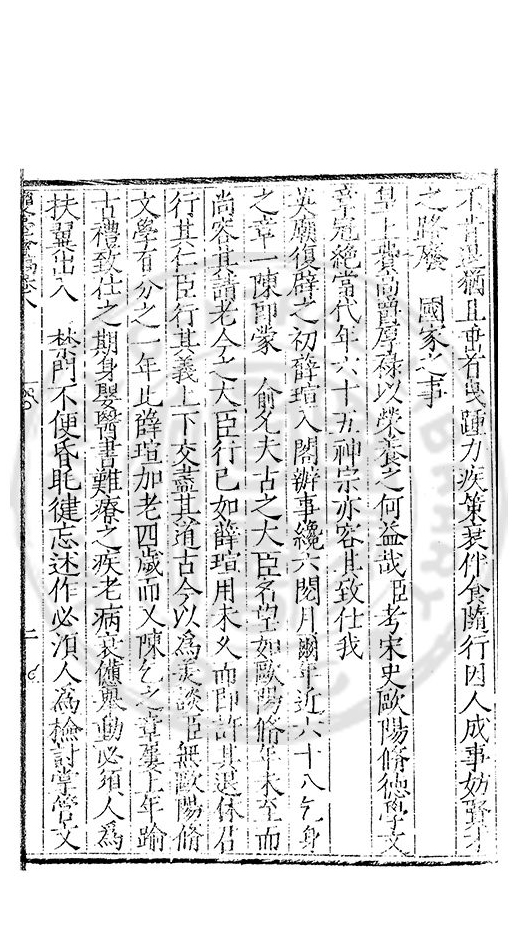 不肖景猶且耄若曳踵力疾策衰伴食隨行因人成事妨賢才
之路癈　國家之事
皇上費高爵厚祿以榮養之何益哉臣考宋史歐陽脩德學文
章冠絕當代年六十五神宗亦容其致仕我
英廟復辟之初薛瑄入閣辦事纔六閱月爾年近六十八乞身
之章一陳即蒙　俞允夫古之大臣名望如歐陽脩年未至而
尚容其請老今之大臣行已如薛瑄用未久而即許其退休君
行其仁臣行其義上下交盡其道古今以為美談臣無歐陽脩
文學百分之一年比薛瑄加老四歲而又陳乞之章屢上年踰
古禮致仕之期身嬰醫書難療之疾老病衰備舉動必須人為
扶翼出入　禁門不便昏眊健忘述作必須人為檢討掌管文